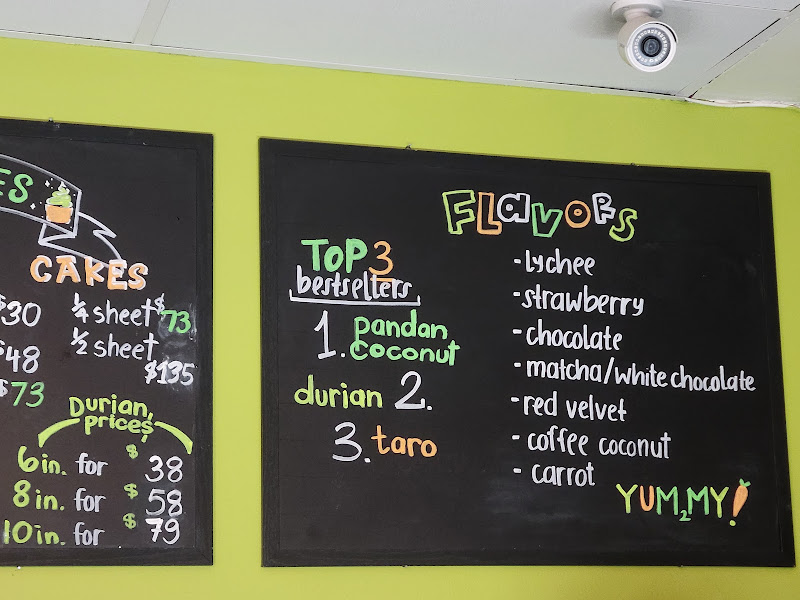 ES
CAKES
$30 1/4 sheet $73
$48 1/2 sheet
$73 $135
Durian
prices
6 in. for $38
8 in. for $58
10 in. for $79
FLavoRs
TOP 3
bestsellers
1. pandan
coconut
durian 2.
3. taro
- lychee
- strawberry
- chocolate
- matcha/white chocolate
- red velvet
- coffee coconut
- carrot
YUM2MY!